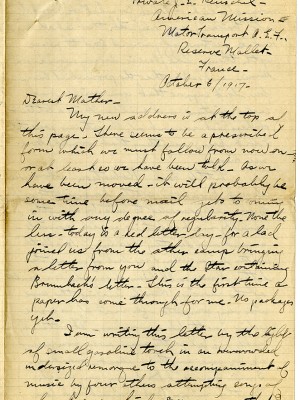 Howard J. 
American Mission
Motor Transport A.E.F.
Reserve Mallet-
France-
October 6/1917-
Dearest Mother-
My new address is at the top of
this page. There seems to be a prescribed
form which we must follow from now on-
or at least so we have been told- As we
have been moved- it will probably be
some time before mail gets to running
in with any degree of regularity. None the
less- today is a red letter day- for a lad
joined us from the other camp bringing
a letter from you and the Star containing
Brumback's letter- This is the first time a
paper has come through for me. No packages
yet-
I am writing this letter by the light
of small gasoline torch in an
undersized to the accompaniment of
music by four others attempting songs of